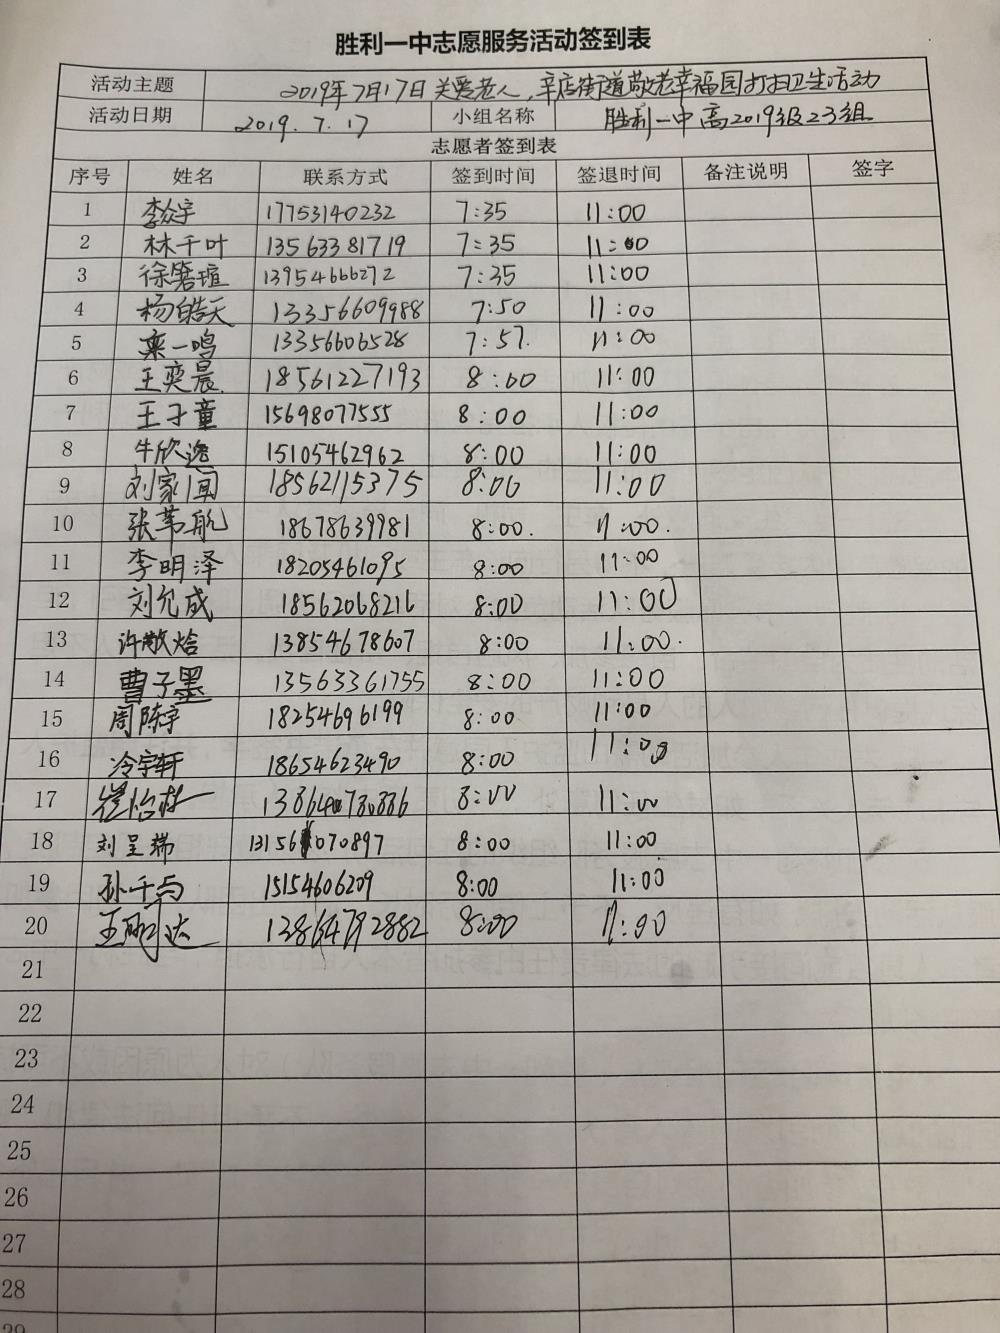 胜利一中志愿服务活动签到表
活动主题 2019年7月17日关爱老人，辛店街道敬老幸福园打扫卫生活动
活动日期 2019.7.17 小组名称 胜利一中高2019级23组
志愿者签到表
序号 姓名 联系方式 签到时间 签退时间 备注说明 签字
1 李众宇 17753140232 7:35 11:00
2 林千叶 13563381719 7:35 11:00
3 徐箬瑄 13954666272 7:35 11:00
4 杨皓天 13356609988 7:50 11:00
5 栾一鸣 13356606528 7:57. 11:00
6 王奕晨 18561227193 8:00 11:00
7 王子童 15698077555 8:00 11:00
8 牛欣逸 15105462962 8:00 11:00
9 刘家闻 18562115375 8:00 11:00
10 张苇航 18678639981 8:00. 11:00.
11 李明泽 18205461095 8:00 11:00
12 刘允成 18562068216 8:00 11:00
13 许敬焓 13854678607 8:00 11:00.
14 曹子墨 13563361755 8:00 11:00
15 周陈宇 18254696199 8:00 11:00
16 冷宇轩 18654623490 8:00 11:00
17 崔怡 8:00 11:00
18 刘呈瑞 13156070897 8:00 11:00
19 孙千与 15154606209 8:00 11:00
20 王 达 13864792882 8:00 11:00
21
22
23
24
25
26
27
28
29